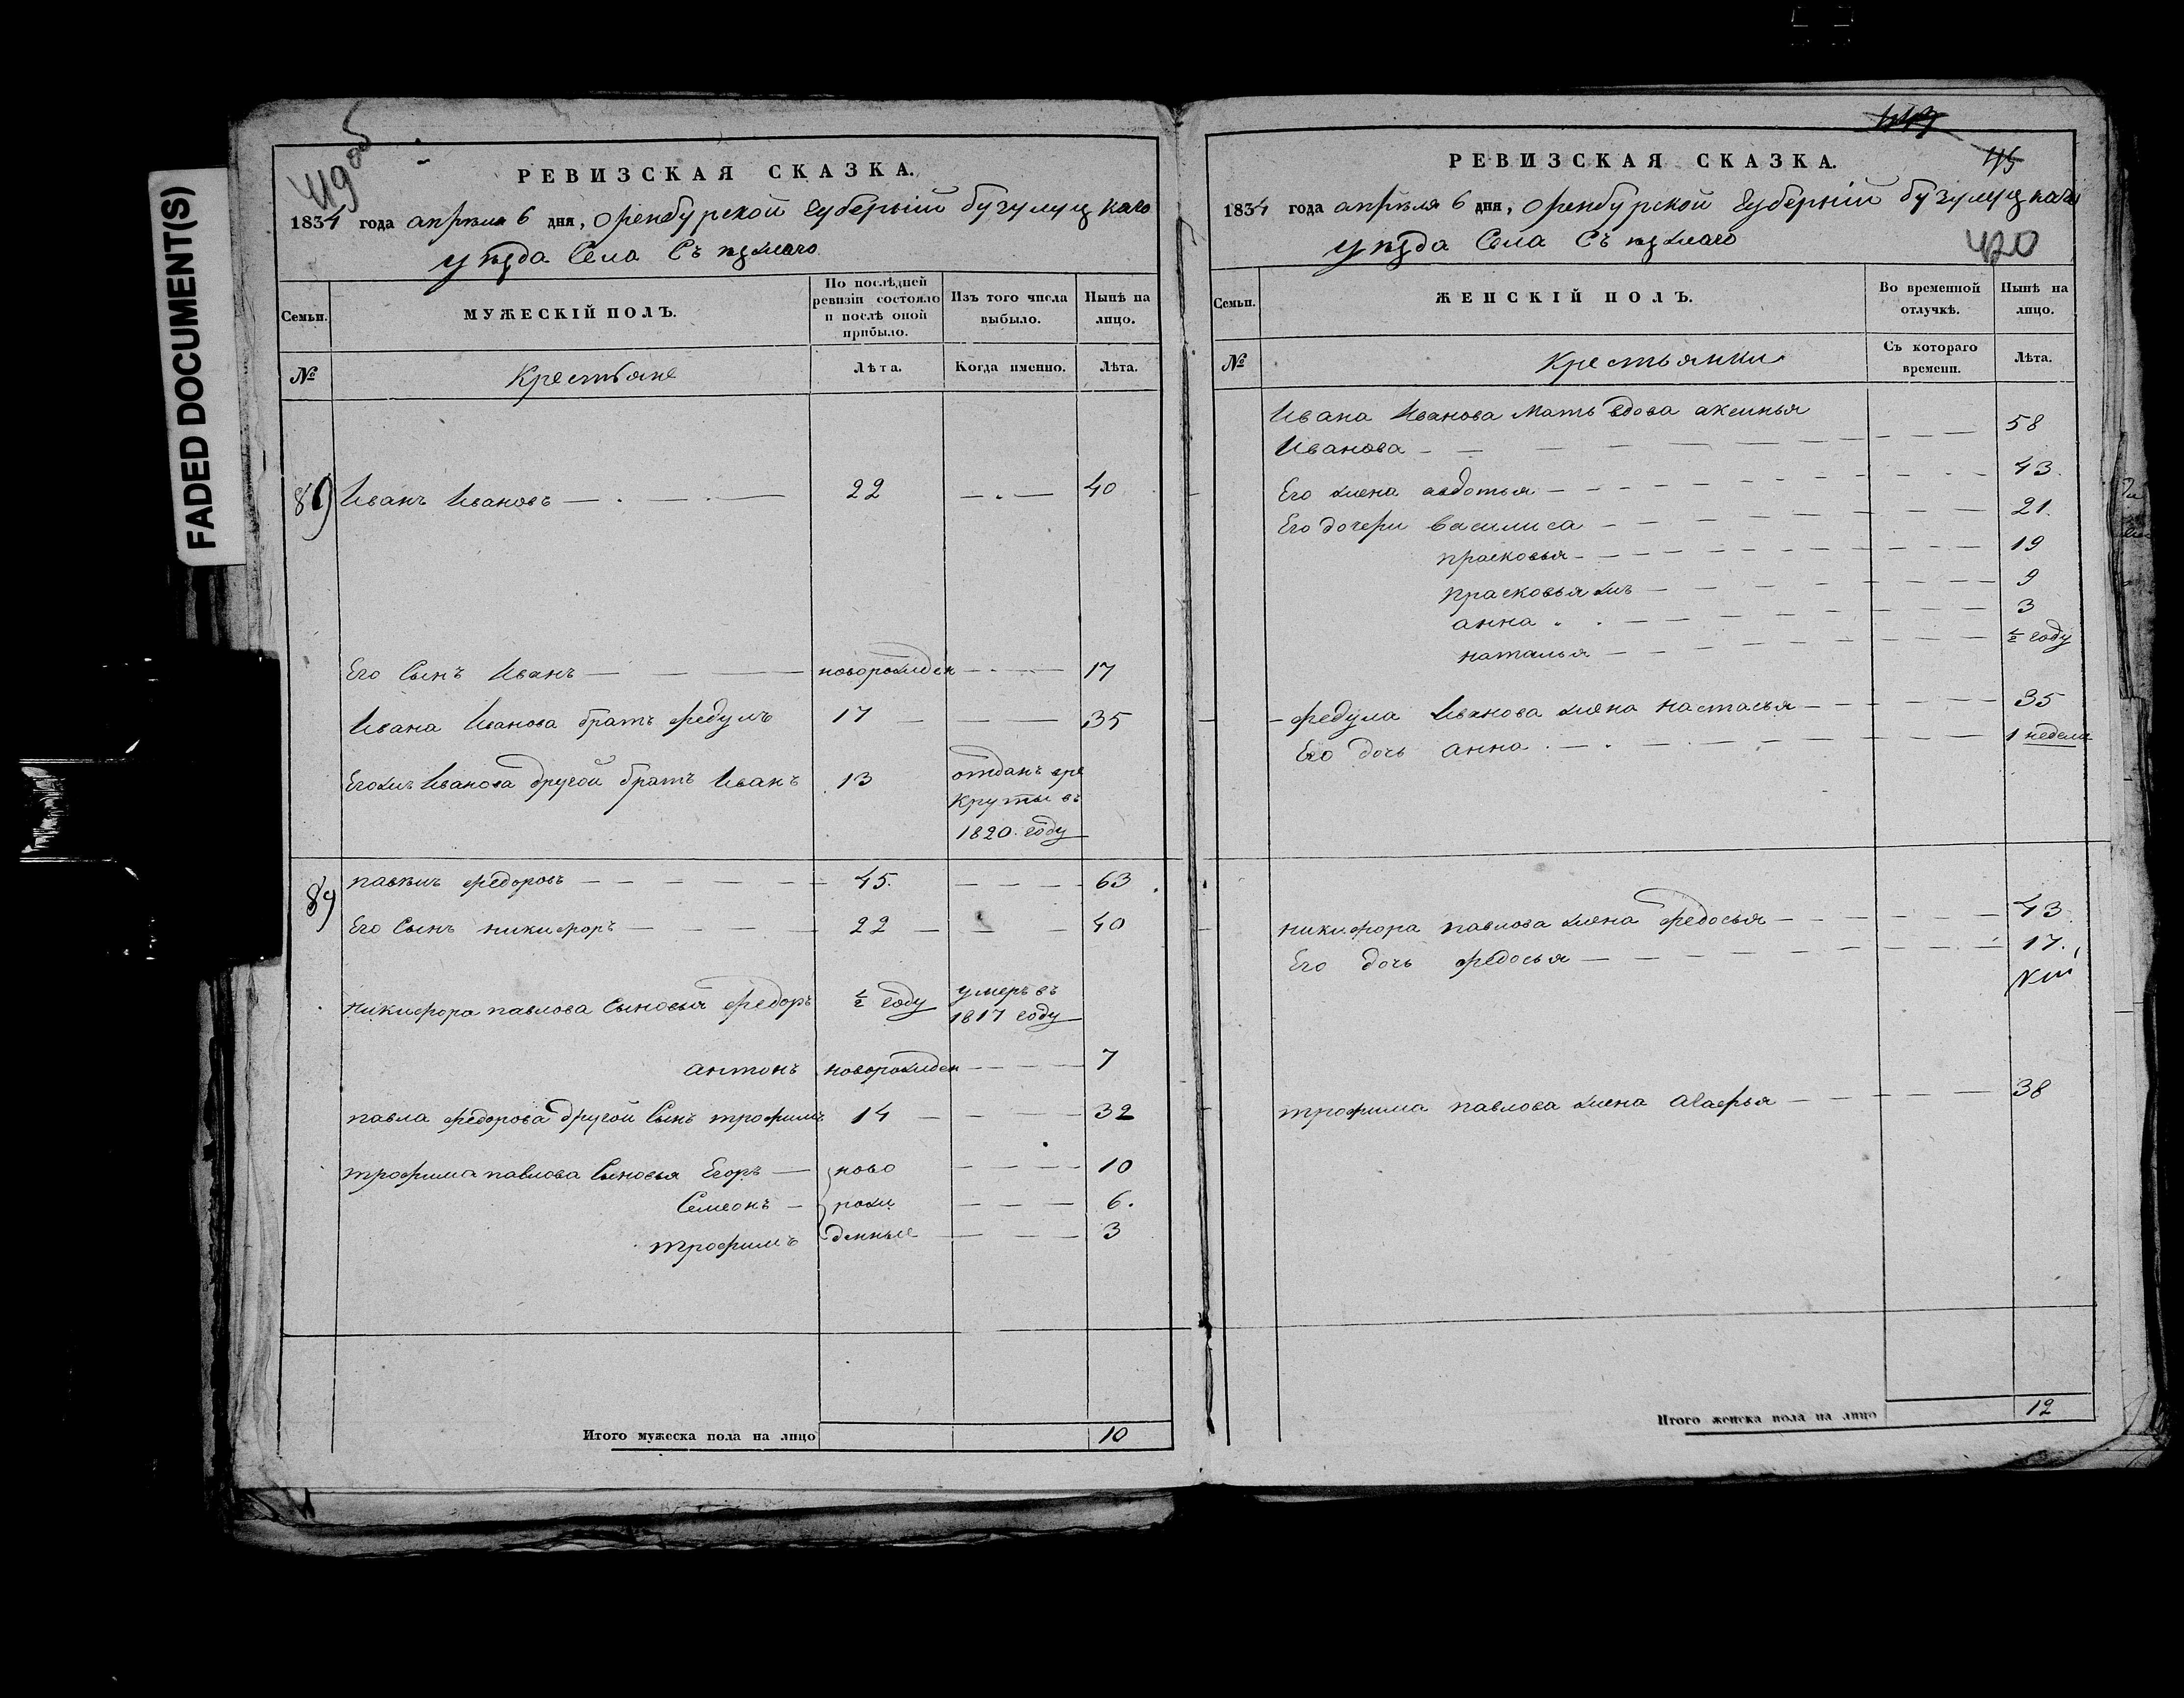 FADED DOCUMENT(S)
419 об
РЕВИЗСКАЯ СКАЗКА.
1834 года апреля 6 дня, оренбурской губерыии бугулуцкаго
уезда Села Съезжаго
Семьи. МУЖЕСКІЙ ПОЛЪ. По послѣдней ревизіи состояло и послѣ оной прибыло. Изъ того числа выбыло. Нынѣ на лицо.
№ Крестьяне Лѣта. Когда именно. Лѣта.
Иванъ Ивановъ 22 40
Его Сынъ Иванъ новорожден 17
Ивана Иванова братъ федулъ 17 35
Егожъ Иванова другой братъ Иванъ 13 отданъ вре
круты въ
1820. году
89 павелъ федоровъ 45. 63
Его Сынъ никифоръ 22 40
никифора павлова Сыновья федоръ ½ году умеръ въ
1817 году
антонъ новорожден 7
павла федорова другой Сынъ трофимъ 14 32
трофима павлова Сыновья Егоръ ново 10
Семеонъ рож 6.
трофимъ денные 3
Итого мужеска пола на лицо 10
РЕВИЗСКАЯ СКАЗКА.
1834 года апреля 6 дня, оренбурской губерыии бузулуцкаго
уезда Села Съезжаго
420
Семьи. ЖЕНСКІЙ ПОЛЪ. Во временной отлучкѣ. Нынѣ на лицо.
№ Крестьянки Съ котораго времени. Лѣта.
Ивана Иванова мать вдова аксинья
Иванова 58
Его жена авдотья 43.
Его дочери василиса 21.
прасковья 19
прасковья жъ 9
анна 3
наталья ½ году
федула Иванова жена настасья 35
Его дочь анна 1 недели
никифора павлова жена федосья 43
Его дочь федосья 17.
трофима павлова жена агафья 38
Итого женска пола на лицо 12